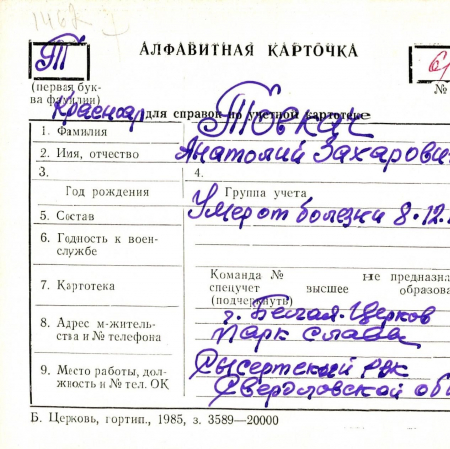 1462
АЛФАВИТНАЯ КАРТОЧКА
Т
(первая бук-
ва фамилии)
№
Краснояр для справок по учетной картотеке
1. Фамилия Товкач
2. Имя, отчество Анатолий Захарович
3. 4.
Год рождения Группа учета
5. Состав Умер от болезни 8.12.
6. Годность к воен-
службе
7. Картотека
Команда № не предназна
спецучет высшее образова
(подчеркнуть)
8. Адрес м-житель-
ства и № телефона
г. Белая-Церков
Парк Слава
9. Место работы, дол-
жность и № тел. ОК
Сысертский РВК
Свердловской об
Б. Церковь, гортип., 1985, з. 3589—20000